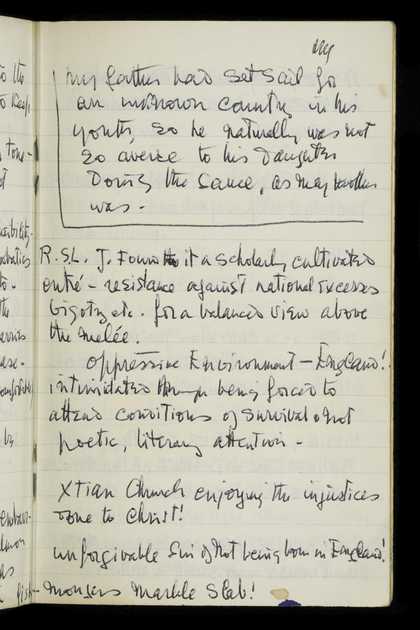 my father had set sail for
an unknown country in his
youth, so he naturally was not
so averse to his daughter
doing the same, as my mother
was -
R.S.L. I. Found it a scholarly, cultivated
entré - resistance against national excesses
bigotry etc. for a balanced view above
the mêlée.
oppressive Environment - England!
intimidated through being forced to
attend conditions of survival & not
poetic, literary attention -
Xtian Church enjoying the injustices
done to Christ!
unforgivable Sin of Not being born in England!
mongers marble Slab!